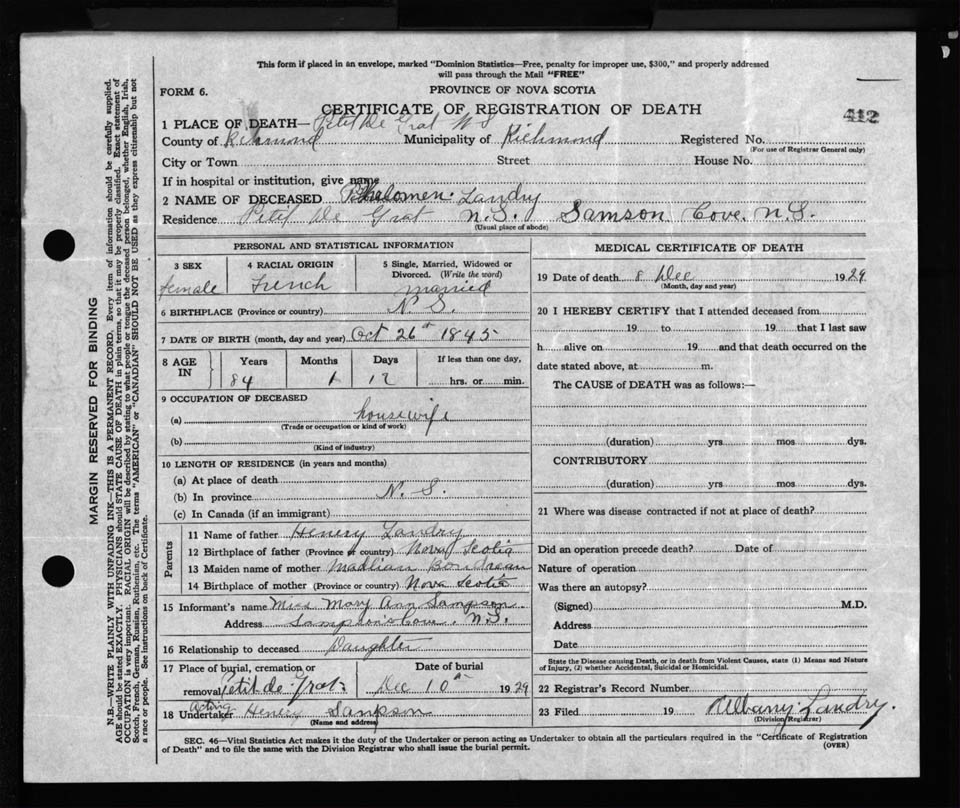 This form if placed in an envelope, marked "Dominion Statistics—Free, penalty for improper use, $300," and properly addressed
will pass through the Mail "FREE"
FORM 6.
PROVINCE OF NOVA SCOTIA
CERTIFICATE OF REGISTRATION OF DEATH
412
1 PLACE OF DEATH— Petit De Grat N S
County of Richmond Municipality of Richmond Registered No.
(For use of Registrar General only)
City or Town Street House No.
If in hospital or institution, give name
2 NAME OF DECEASED Phelomen Landry
Residence Petit De Grat N.S. Samson Cove. N.S.
(Usual place of abode)
PERSONAL AND STATISTICAL INFORMATION
3 SEX 4 RACIAL ORIGIN 5 Single, Married, Widowed or
Divorced. (Write the word)
female French married
6 BIRTHPLACE (Province or country) N. S.
7 DATE OF BIRTH (month, day and year) Oct 26th 1845
8 AGE IN Years Months Days If less than one day,
84 1 12 hrs. or min.
9 OCCUPATION OF DECEASED
(a) housewife
(Trade or occupation or kind of work)
(b)
(Kind of industry)
10 LENGTH OF RESIDENCE (in years and months)
(a) At place of death
(b) In province N. S.
(c) In Canada (if an immigrant)
Parents
11 Name of father Henry Landry
12 Birthplace of father (Province or country) Nova Scotia
13 Maiden name of mother Madlian Boudreau
14 Birthplace of mother (Province or country) Nova Scotia
15 Informant's name Miss Mary Ann Sampson
Address Sampsons Cove. N.S.
16 Relationship to deceased Daughter
17 Place of burial, cremation or Date of burial
removal Petit de Grat Dec 10th 1929
Acting
18 Undertaker Henry Sampson
(Name and address)
MEDICAL CERTIFICATE OF DEATH
19 Date of death 8 Dec 1929
(Month, day and year)
20 I HEREBY CERTIFY that I attended deceased from
19 to 19 that I last saw
h alive on 19 and that death occurred on the
date stated above, at m.
The CAUSE of DEATH was as follows:—
(duration) yrs mos dys.
CONTRIBUTORY
(duration) yrs mos dys.
21 Where was disease contracted if not at place of death?
Did an operation precede death? Date of
Nature of operation
Was there an autopsy?
(Signed) M.D.
Address
Date
State the Disease causing Death, or in death from Violent Causes, state (1) Means and Nature
of Injury, (2) whether Accidental, Suicidal or Homicidal.
22 Registrar's Record Number
23 Filed 19 Albany Landry.
(Division Registrar)
SEC. 46—Vital Statistics Act makes it the duty of the Undertaker or person acting as Undertaker to obtain all the particulars required in the "Certificate of Registration
of Death" and to file the same with the Division Registrar who shall issue the burial permit.
(OVER)
MARGIN RESERVED FOR BINDING
N.B.—WRITE PLAINLY WITH UNFADING INK—THIS IS A PERMANENT RECORD. Every item of information should be carefully supplied.
AGE should be stated EXACTLY. PHYSICIANS should STATE CAUSE OF DEATH in plain terms, so that it may be properly classified. Exact statement of
OCCUPATION is very important. RACIAL ORIGIN will be described by stating to what people or tongue the deceased person belonged, whether English, Irish,
Scotch, French, German, Russian, Ruthenian, etc. The terms "AMERICAN" or "CANADIAN" SHOULD NOT BE USED as they express citizenship but not
a race or people. See instructions on back of Certificate.